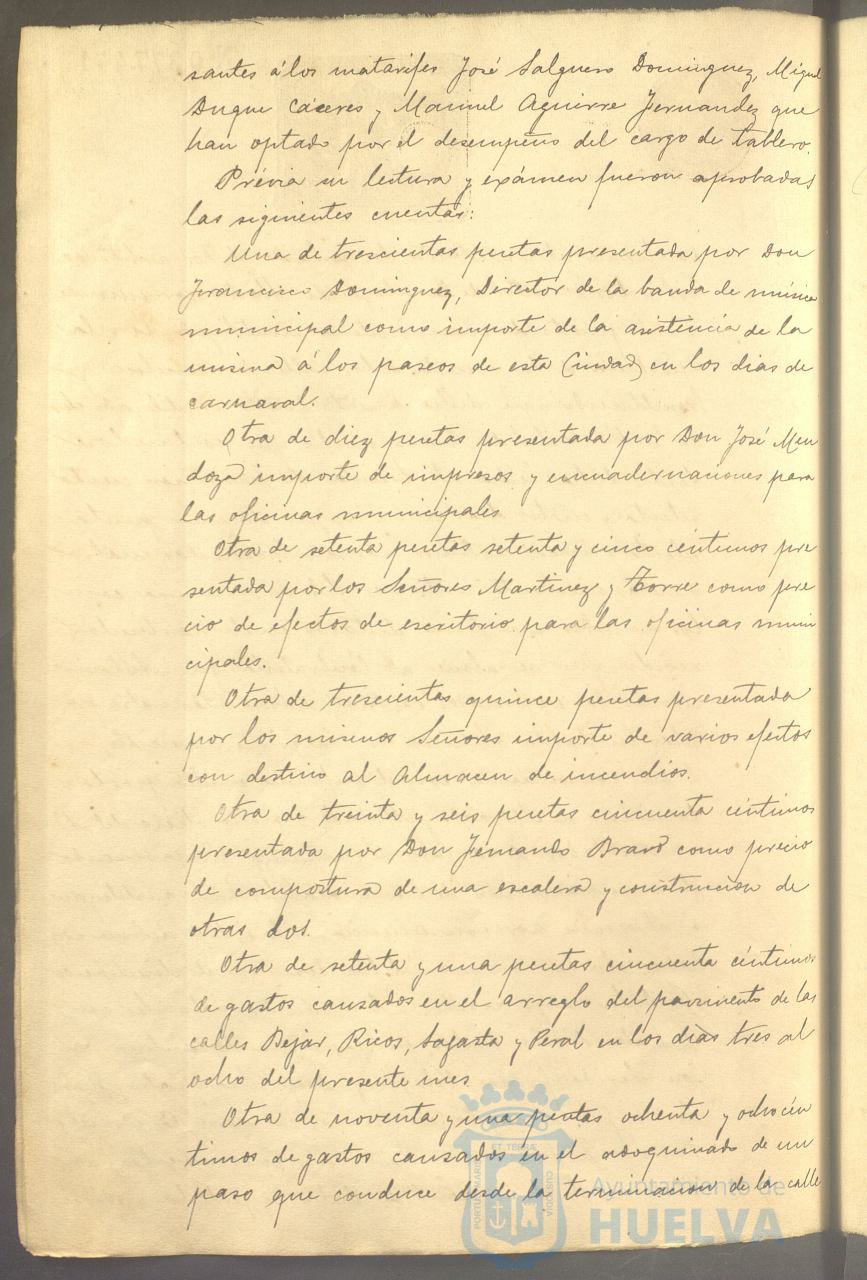 santes á los matarifes José Salguero Dominguez, Miguel
Duque Cáceres y Manuel Aguirre Fernandez que
han optado por el desempeño del cargo de tablero.
Prévia su lectura y exámen fueron aprobadas
las siguientes cuentas:
Una de trescientas pesetas presentada por Don
Francisco Dominguez, Director de la banda de música
municipal como importe de la asistencia de la
misma á los paseos de esta Ciudad en los dias de
carnaval.
Otra de diez pesetas presentada por Don José Men
doza importe de impresos y encuadernaciones para
las oficinas municipales
Otra de setenta pesetas setenta y cinco céntimos pre
sentada por los Señores Martinez y Torre como pre
cio de efectos de escritorio para las oficinas muni
cipales.
Otra de trescientas quince pesetas presentada
por los mismos Señores importe de varios efectos
con destino al Almacen de incendios.
Otra de treinta y seis pesetas cincuenta céntimos
presentada por Don Fernando Bravo como precio
de compostura de una escalera y construccion de
otras dos.
Otra de setenta y una pesetas cincuenta céntimos
de gastos causados en el arreglo del pavimento de las
calles Bejar, Ricos, Sagasta y Peral en los dias tres al
ocho del presente mes
Otra de noventa y una pesetas ochenta y ocho cén
timos de gastos causados en el adoquinado de un
paso que conduce desde la terminacion de la calle
Ayuntamiento de
HUELVA